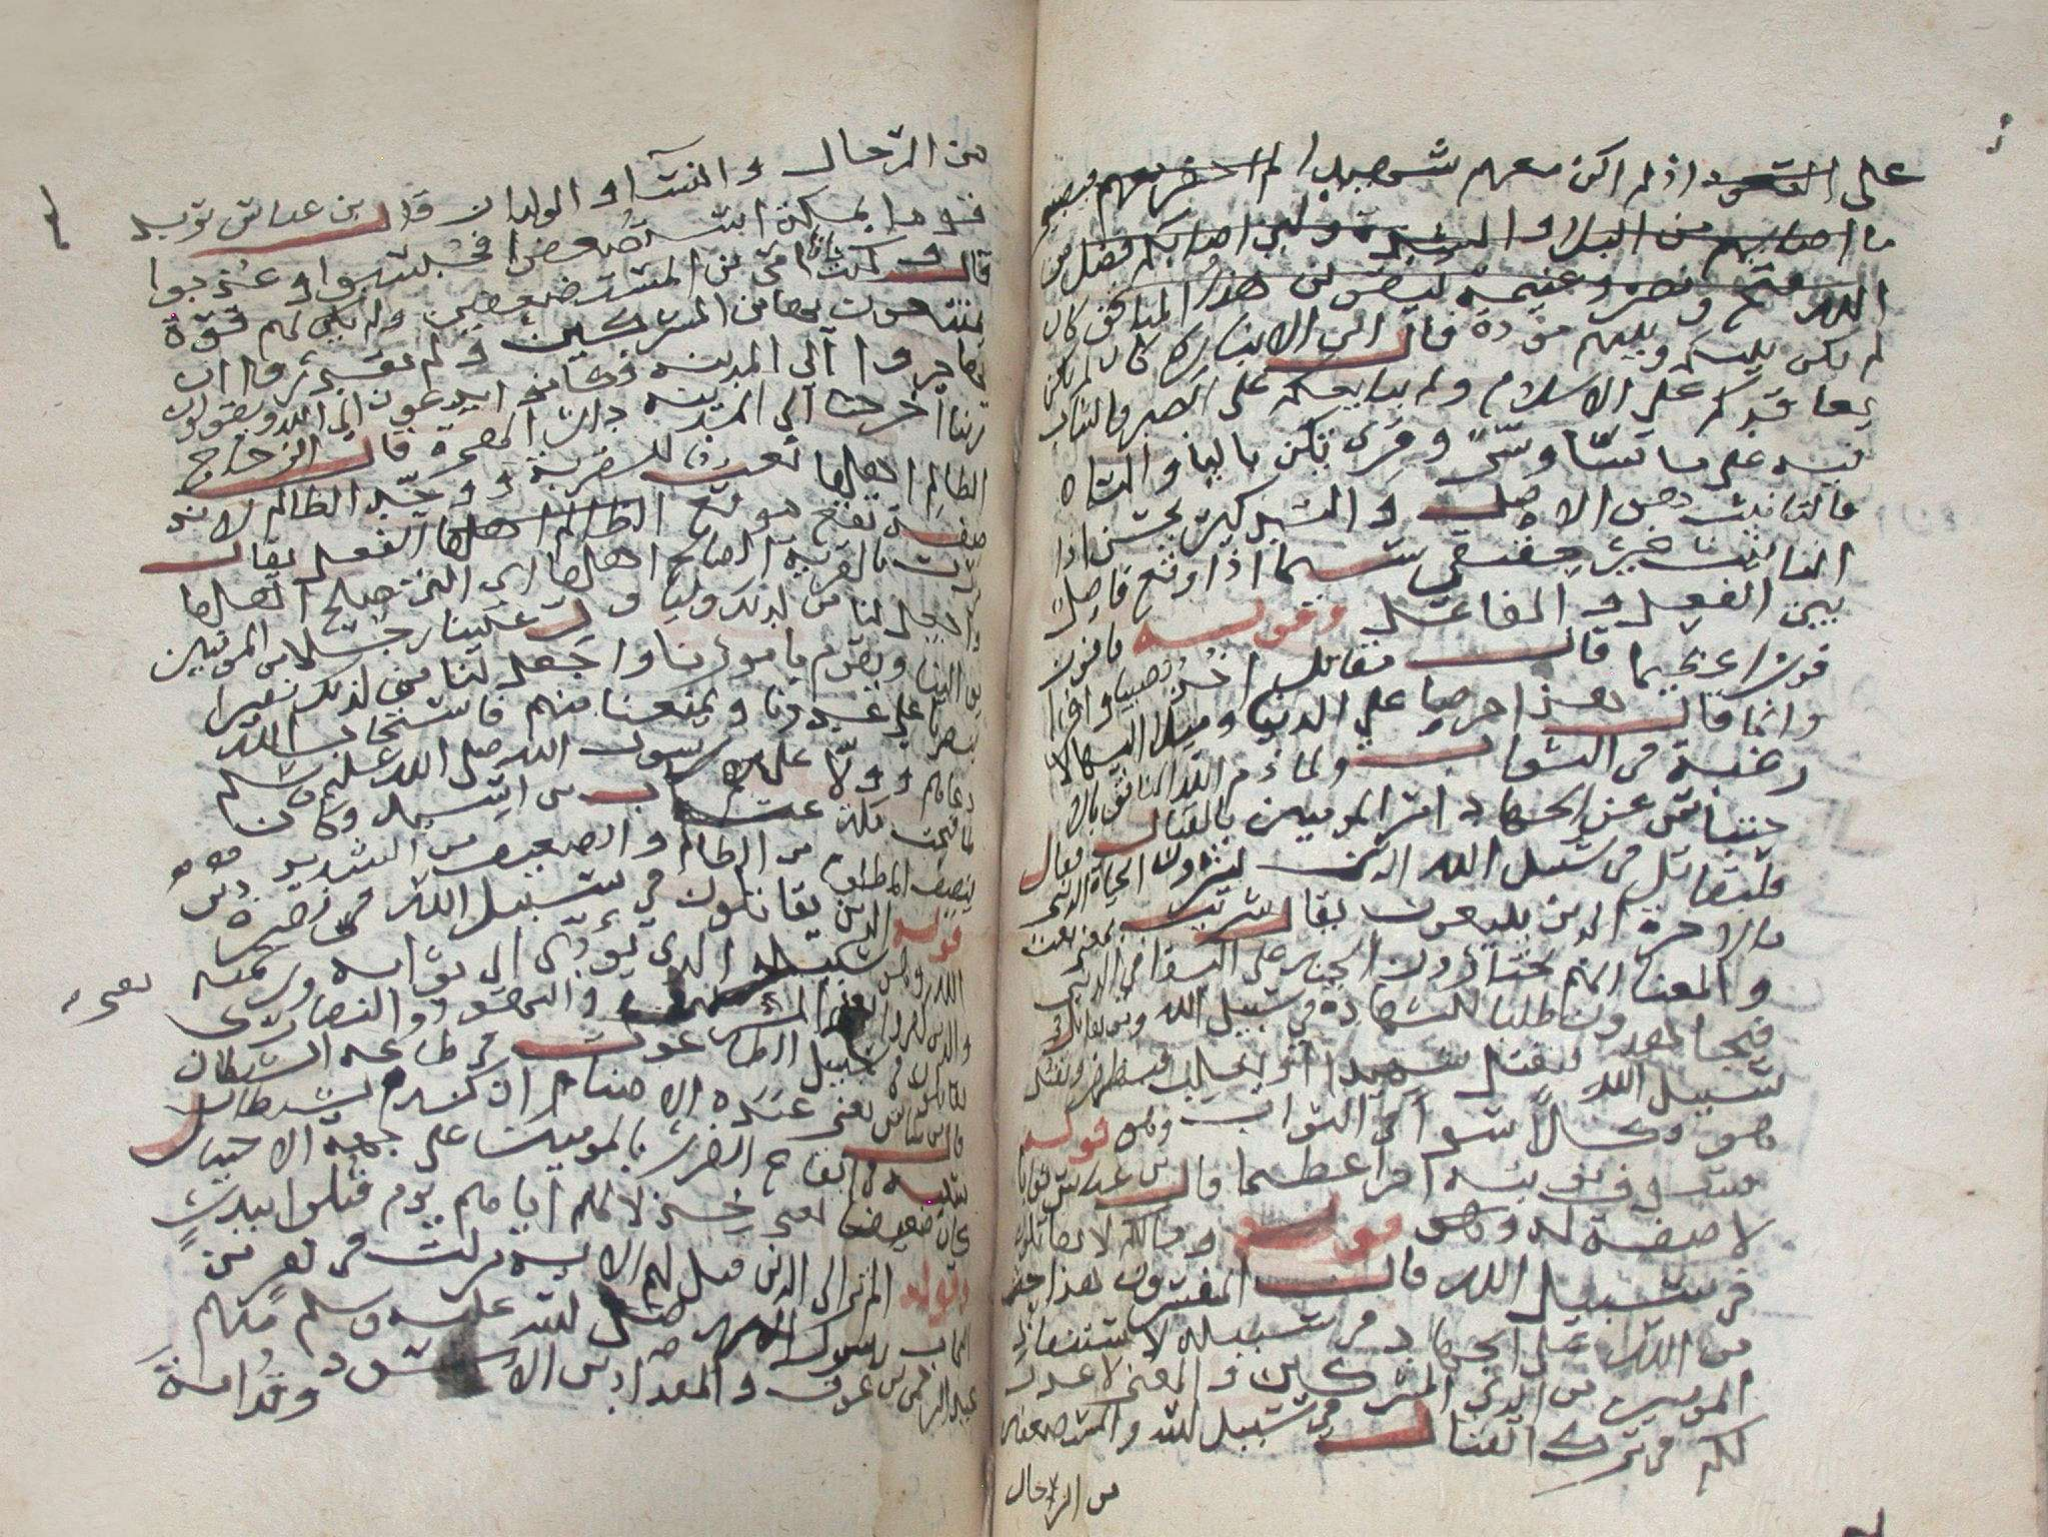 على القعود اذ لم اكن معهم شهيدا لم احضر معهم فيصيبني
ما اصابهم من البلاء والشدة ولين اصابكم فضل من
الله فتح ونصر وغنيمة ليقولن هذا المنافق كان
لم تكن بينكم وبينه مودة قال ابن الانباري كان لم يكن
يعاقدكم على الاسلام ولم يبايعكم على الصبر والثبات
فيه على ما سا وسر وقرى تكن باليا والتاء
فالتانيث هو الاصل والتذكير يحسن اذا
التانيث غير حقيقي سيما اذا وقع فاصل
بين الفعل والفاعل وقوله فافوز
فوزا عظيما قال مقاتل اخذ نصيبا وافرا
وانما قال هذا حرصا على الدنيا وميلا اليها لا
رغبة في الثواب ولما ذم الله المنافق بالا
حتباس عن الجهاد امر المومنين بالقتال فقال
فليقاتل في سبيل الله الذين يشرون الحياة الدنيا
بالاخرة الذين يبيعون يقال شريت بمعنى بعت
والمعنا انهم يختارون الجنة على البقا في الدنيا
فيجاهدون طلبا للشهادة في سبيل الله ومن يقاتل في
سبيل الله فيقتل شهيدا او يغلب فيظفر ويقتل
هو وكلا سوا في الثواب وهو قوله
فسوف نوتيه اجرا عظيما قال بن عباس ثوابا
لا صفة له وهو قوله ومالكم لا تقاتلون
في سبيل الله قال المفسرون هذا حض
من الله على الجهاد في سبيله لاستنقاذ
المومنين من ايدي المشركين والمعنى لا عذر
لكم في ترك القتال في سبيل الله والمستضعفين
من الرجال
من الرجال والنسا والولدان قال بن عباس يريد
قوما بمكة استضعفوا فحبسوا وعذبوا
قال وكنت انا وامي من المستضعفين ولم يكن لهم قوة
يمتنعون بها من المشركين ولم يقدروا ان
يهاجروا الى المدينة وكانوا يدعون الله ويقولون
ربنا اخرجنا الى المدينة دار الهجرة قال الزجاج
الظالم اهلها نعت للقرية ووحد الظالم لانه
صفة تقع موقع الفعل يقال
مررت بالقرية الصالح اهلها اي التي صلح اهلها
واجعل لنا من لدنك وليا ول علينا رجلا من المومنين
يوالينا ويقوم بامورنا واجعل لنا من لدنك نصيرا
ينصرنا على عدونا ويمنعنا منهم فاستجاب الله
دعاهم وولا عليهم رسول الله صلى الله عليه وسلم
لما فتحت مكة عتاب بن اسيد وكان
ينصف المظلوم من الظالم والضعيف من الشديد
قوله الذين يقاتلون في سبيل الله في نصرة دين
الله وهو سبيله الذي يودي الى ثوابه ورحمته
والذين كفروا يعني المشركين واليهود والنصارى
يقاتلون في سبيل الطاغوت في طاعة الشيطان
قال بن عباس يعني عبدة الاصنام ان كيد الشيطان
ايقاع الضرر بالمومنين على جهة الاحتيال
كان ضعيفا يعني لانه اياهم يوم قتلوا ببدر
وقوله الم تر الى الذين قيل لهم الاية نزلت في نفر من
اصحاب رسول الله صلى الله عليه وسلم منهم
عبد الرحمن بن عوف والمقداد بن الاسود وقدامة